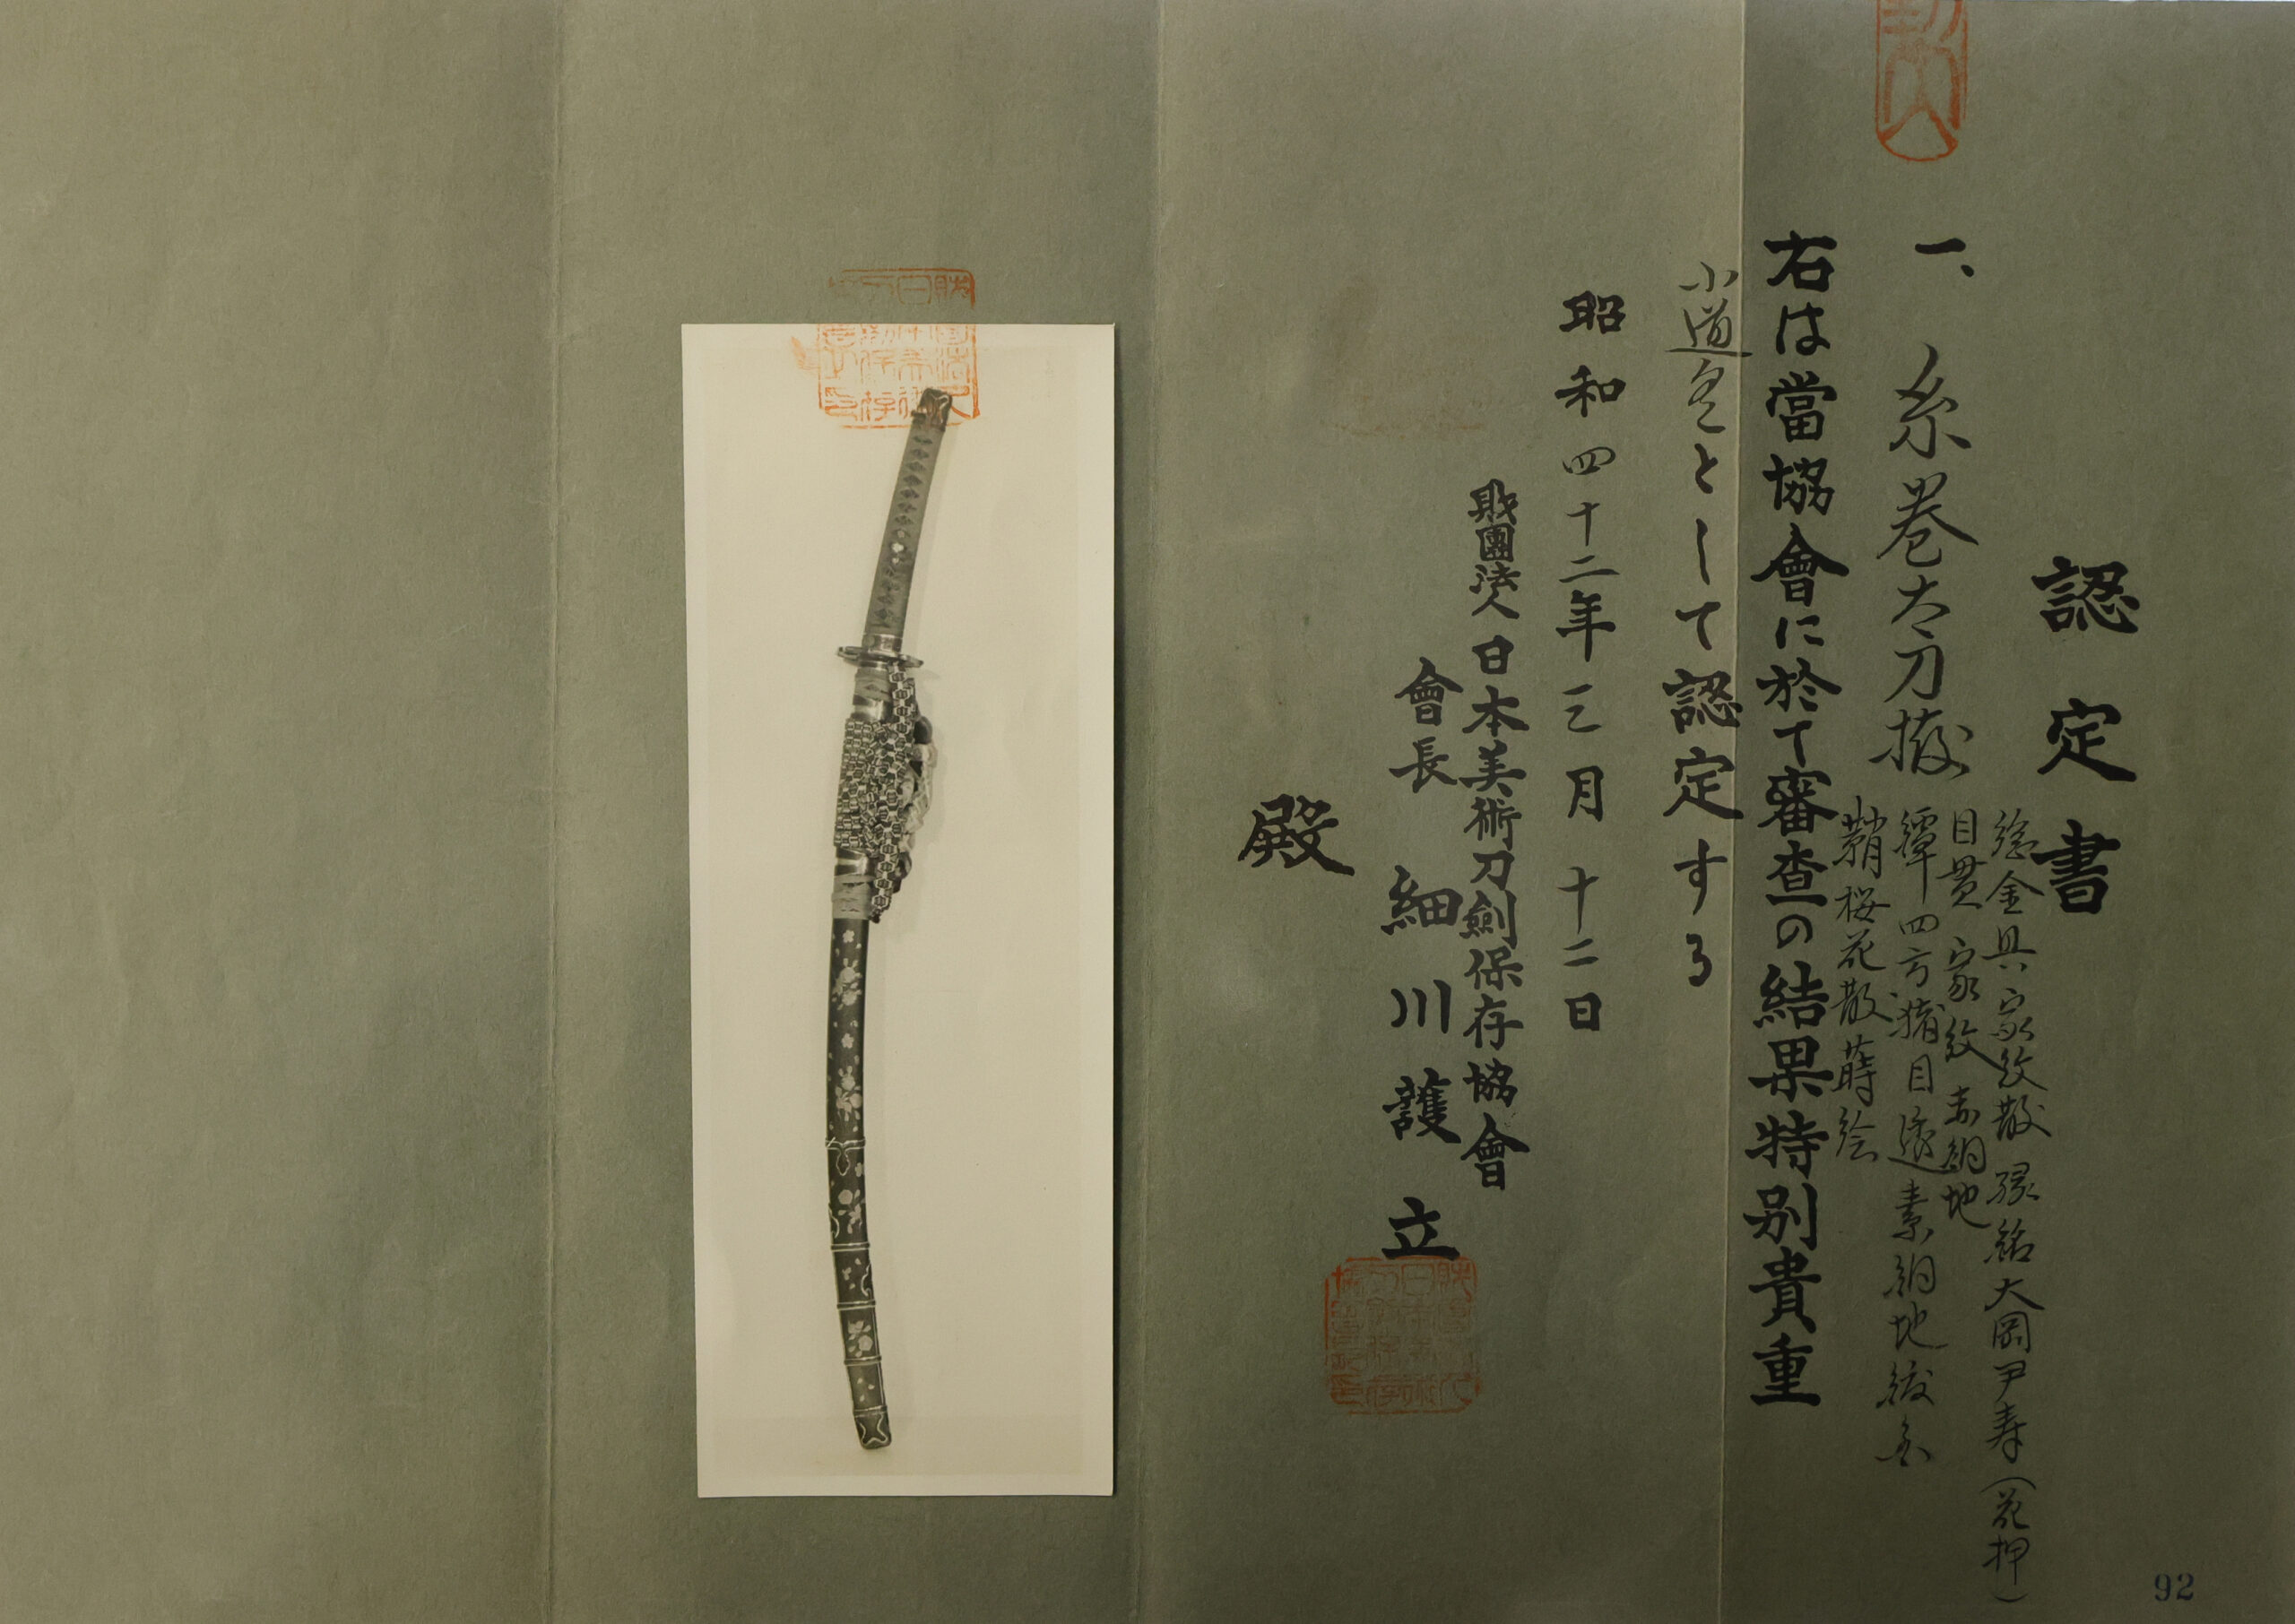 認定書
一、糸巻太刀拵
総金具 家紋散 縁銘 大岡尹寿(花押)
目貫 家紋 赤銅地
鐔 四方猪目透 素銅地
鞘 桜花散蒔絵
右は當協會に於て審査の結果特別貴重
小道具として認定する
昭和四十二年三月十二日
財團法人日本美術刀劍保存協會
會長 細川護立
殿
92